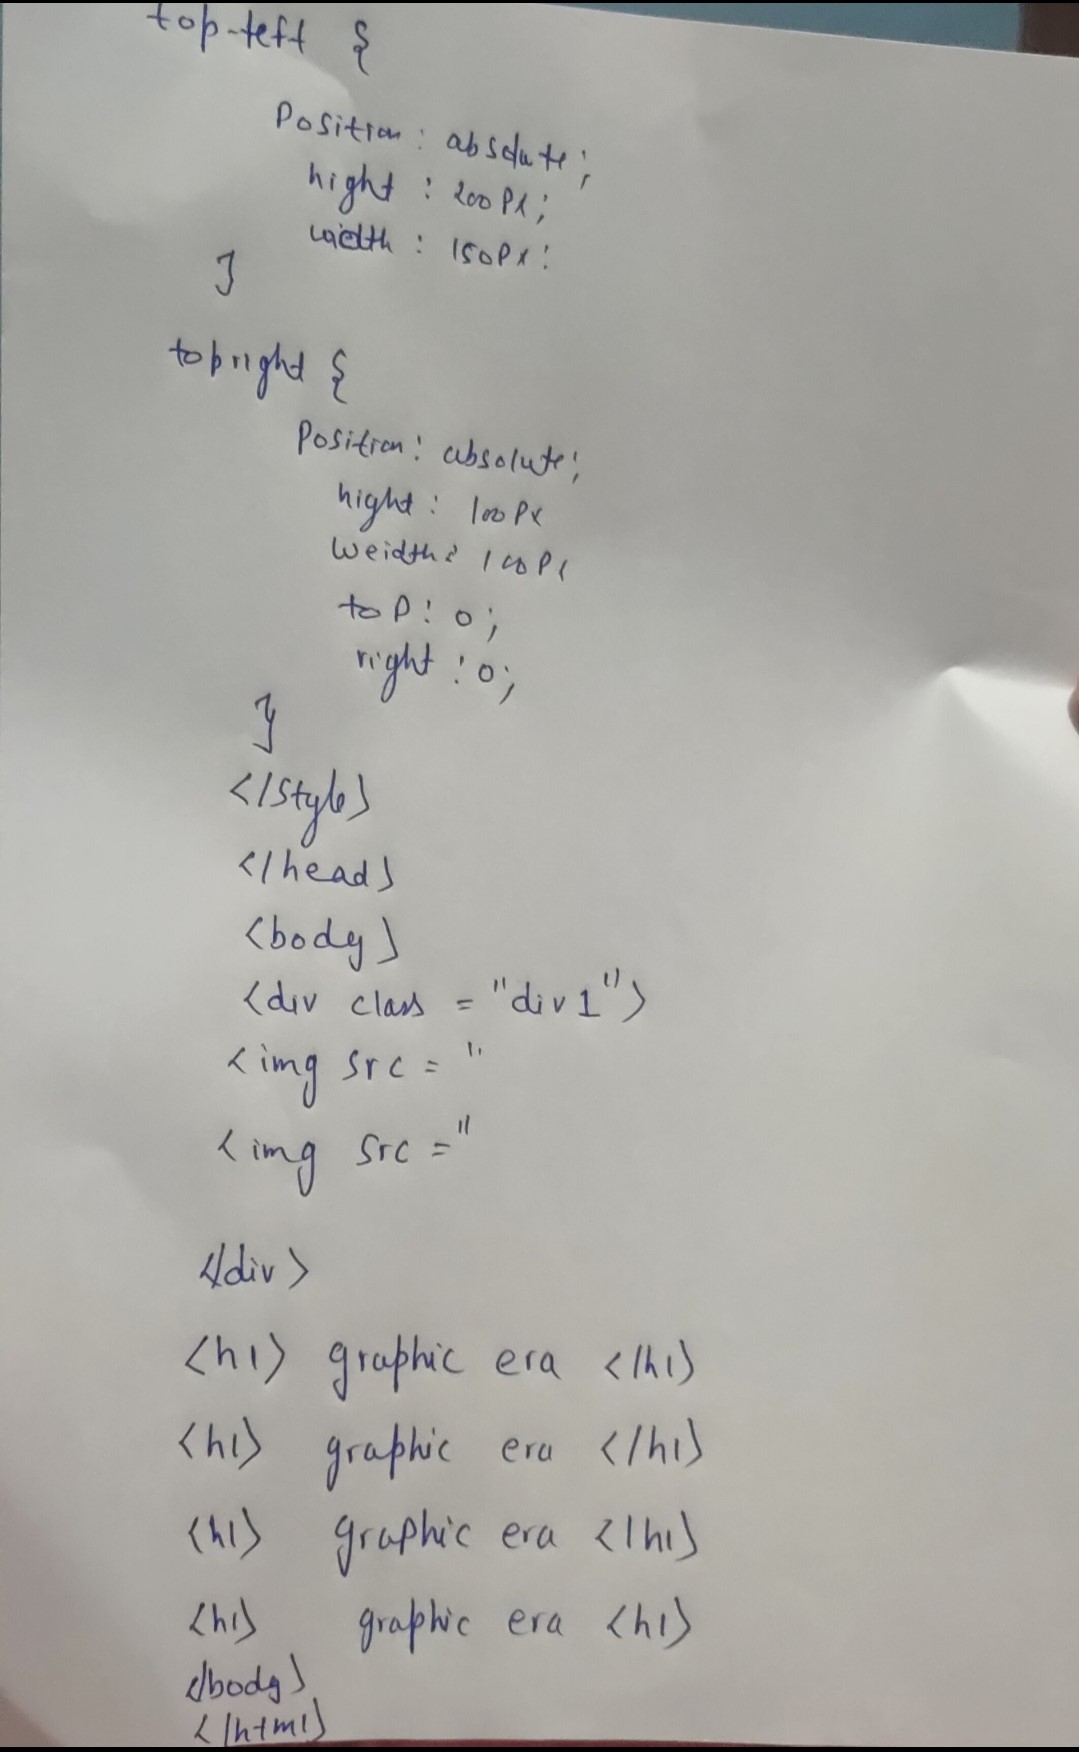 top-left {
Position : absolute ;
hight : 200 Px ;
width : 150Px :
}
topright {
Position : absolute ;
hight : 100 Px
Weidth : 100Px
top : 0 ;
right : 0 ;
}
</style>
</head>
<body>
<div class = "div1">
<img src = "
<img src = "
</div>
<h1> graphic era </h1>
<h1> graphic era </h1>
<h1> graphic era </h1>
<h1> graphic era <h1>
</body>
</html>